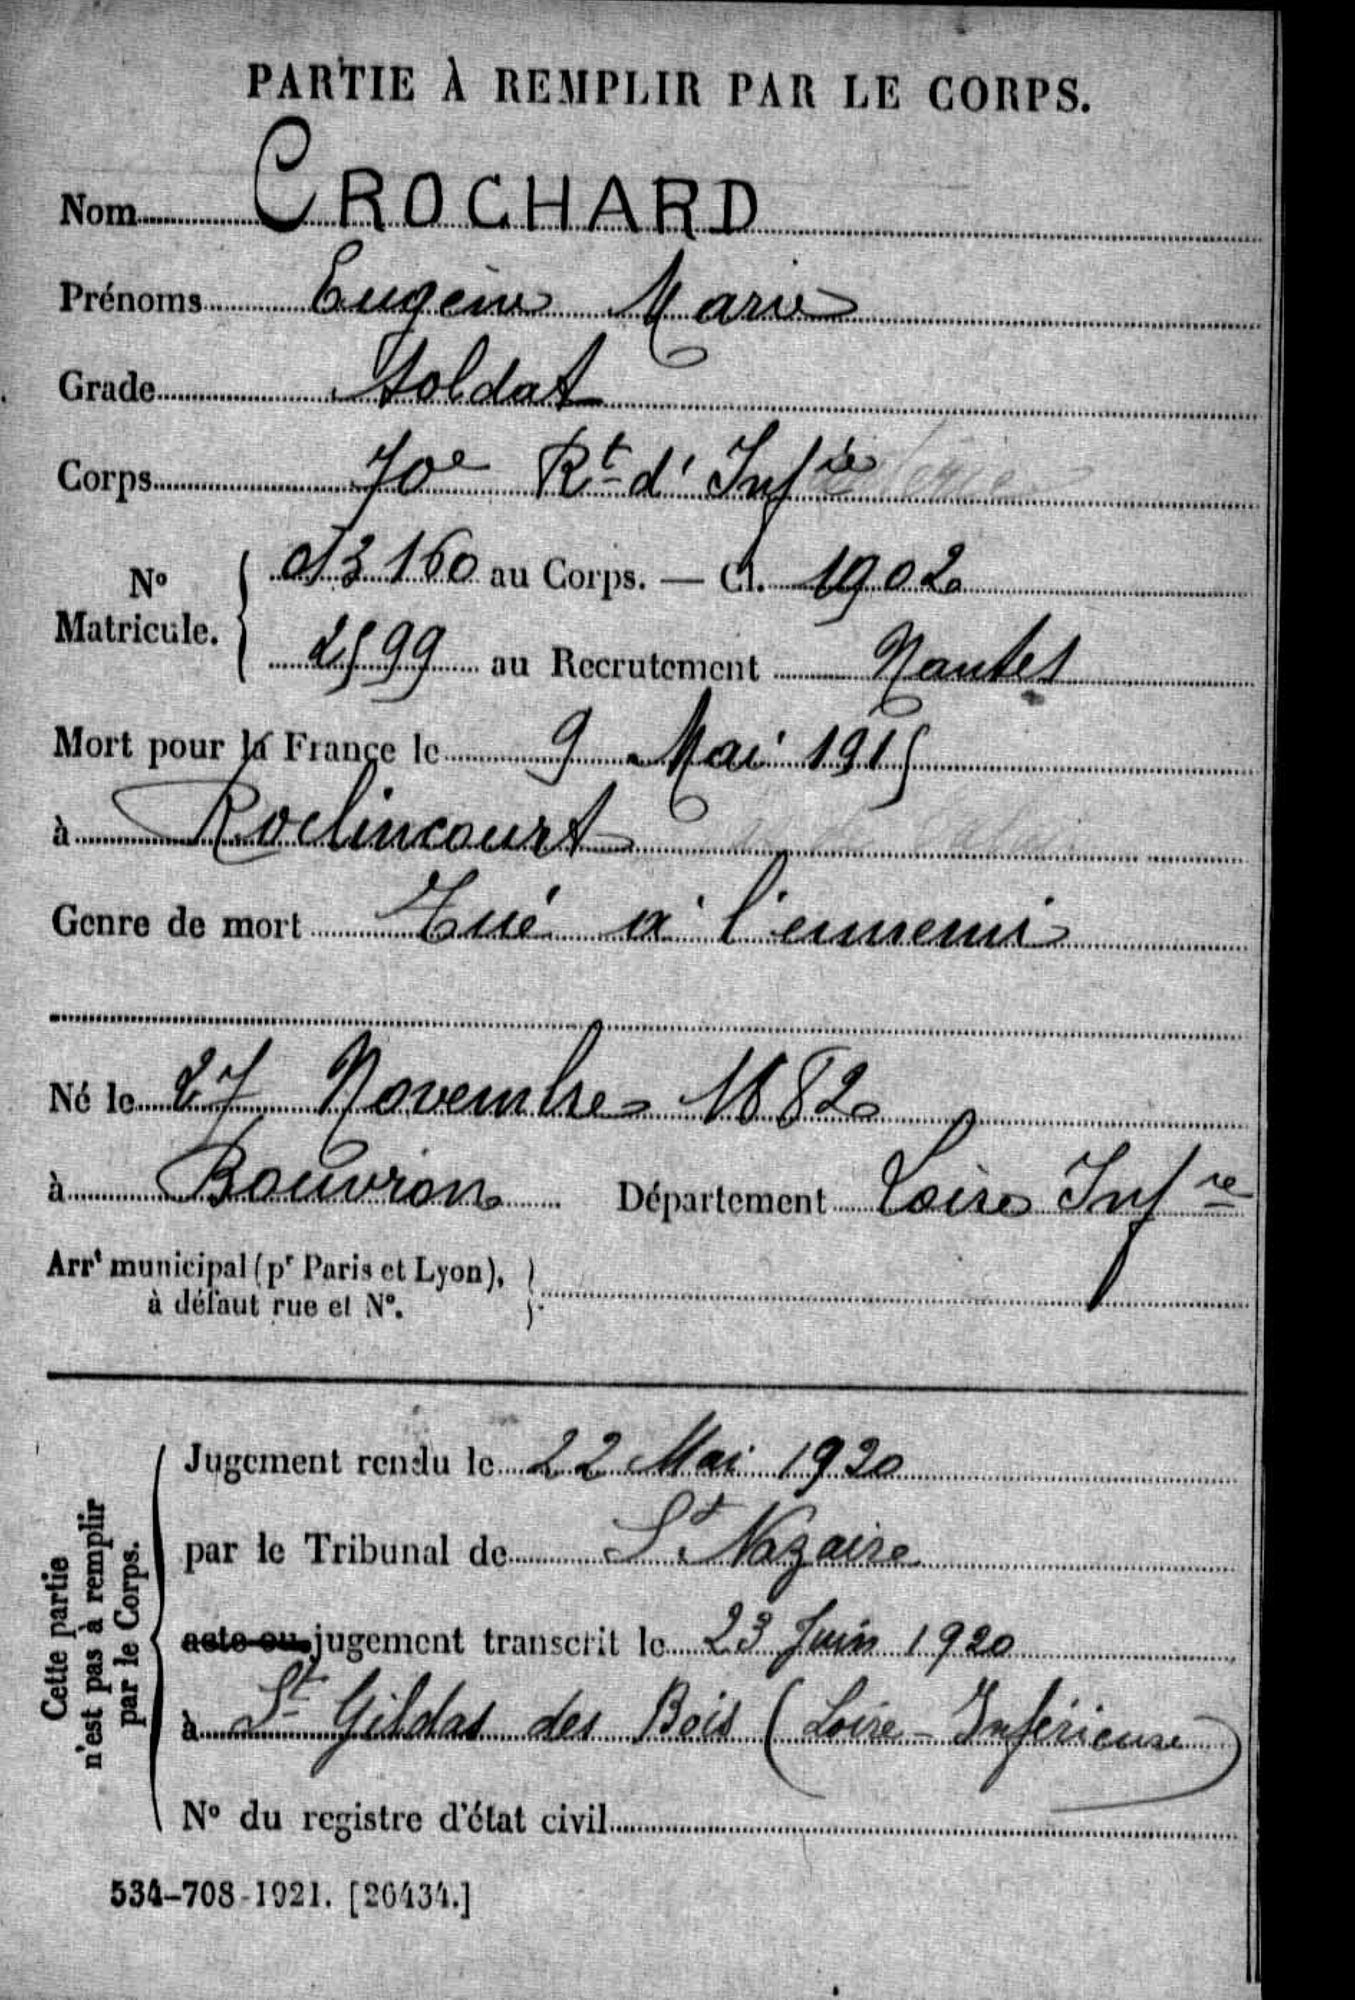 PARTIE À REMPLIR PAR LE CORPS.
Nom CROCHARD
Prénoms Eugène Marie
Grade Soldat
Corps 70e Rt d'Infie
No Matricule. 013160 au Corps. — Cl. 1902
2599 au Recrutement Nantes
Mort pour la France le 9 Mai 1915
à Roclincourt
Genre de mort Tué à l'ennemi
Né le 27 Novembre 1882
à Bouvron Département Loire Infre
Arrt municipal (pr Paris et Lyon),
à défaut rue et No.
Cette partie
n'est pas à remplir
par le Corps.
Jugement rendu le 22 Mai 1920
par le Tribunal de St Nazaire
acte ou jugement transcrit le 23 Juin 1920
à St Gildas des Bois (Loire-Inférieure)
No du registre d'état civil
534-708-1921. [26434.]